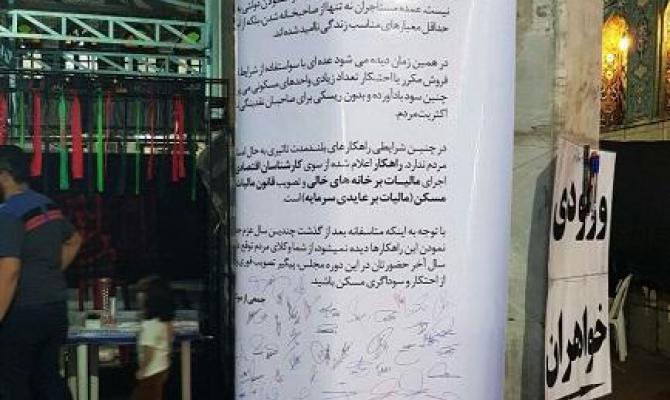 نیست. عمده مستأجران نه تنها از صاحبخانه شدن بلکه از
حداقل معیارهای مناسب زندگی ناامید شده‌اند.
در همین زمان دیده می شود عده ای با سواستفاده از شرایط
فروش مکرر یا احتکار تعداد زیادی واحدهای مسکونی می
چنین سود بادآورده و بدون ریسکی برای صاحبان نقدینگی
اکثریت مردم.
در چنین شرایطی راهکار های بلندمدت تاثیری به حال
مردم ندارد. راهکار اعلام شده از سوی کارشناسان اقتصادی
اجرای مالیات بر خانه های خالی و تصویب قانون مالیات
مسکن (مالیات بر عایدی سرمایه) است.
با توجه به اینکه متاسفانه بعد از گذشت چندین سال عزم
نمودن این راهکارها دیده نمیشود، از شما وکلای مردم توقع
سال آخر حضورتان در این دوره مجلس، پیگیر تصویب فوری
از احتکار و سوداگری مسکن باشید.
جمعی از
ورودی
خواهران